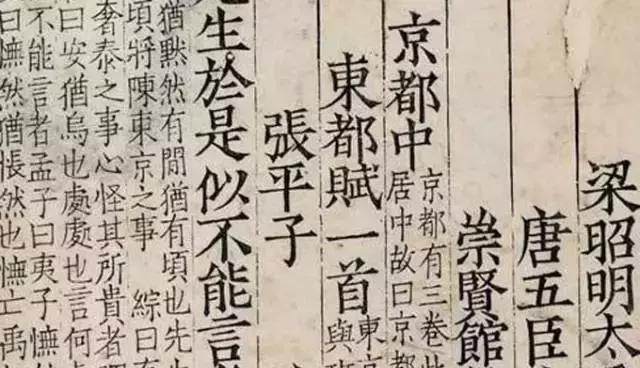 梁昭明太
唐五臣
崇賢館
京都中
京都有三卷此
居中故曰京都
東都賦一首
東京
與班
張平子
先生於是似不能言
猶黙然有間猶有頃也先生
頃將陳東京之事 綜曰有
奢泰之事心怪其所貴者
曰安猶烏也處處也言何
不能言者孟子曰夷子憮
曰憮然猶悵然也憮亡禹